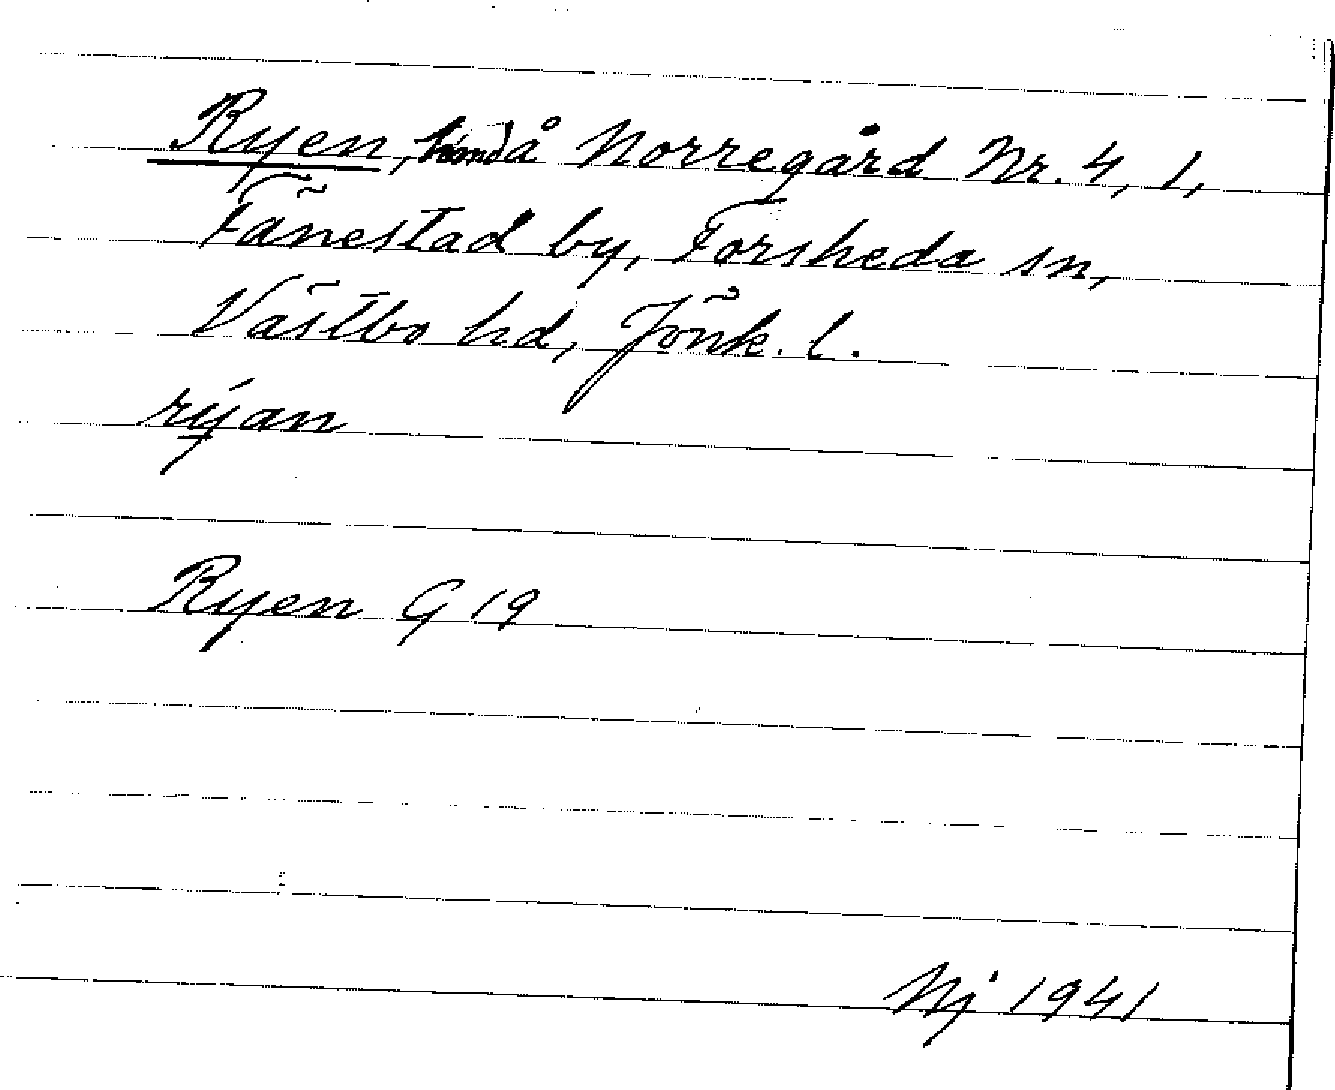 Ryen, å Norregård Nr. 4, 1,
Fänestad by, Forsheda sn,
Västbo hd, Jönk. l.
rýan
Ryen G 19
Nj 1941